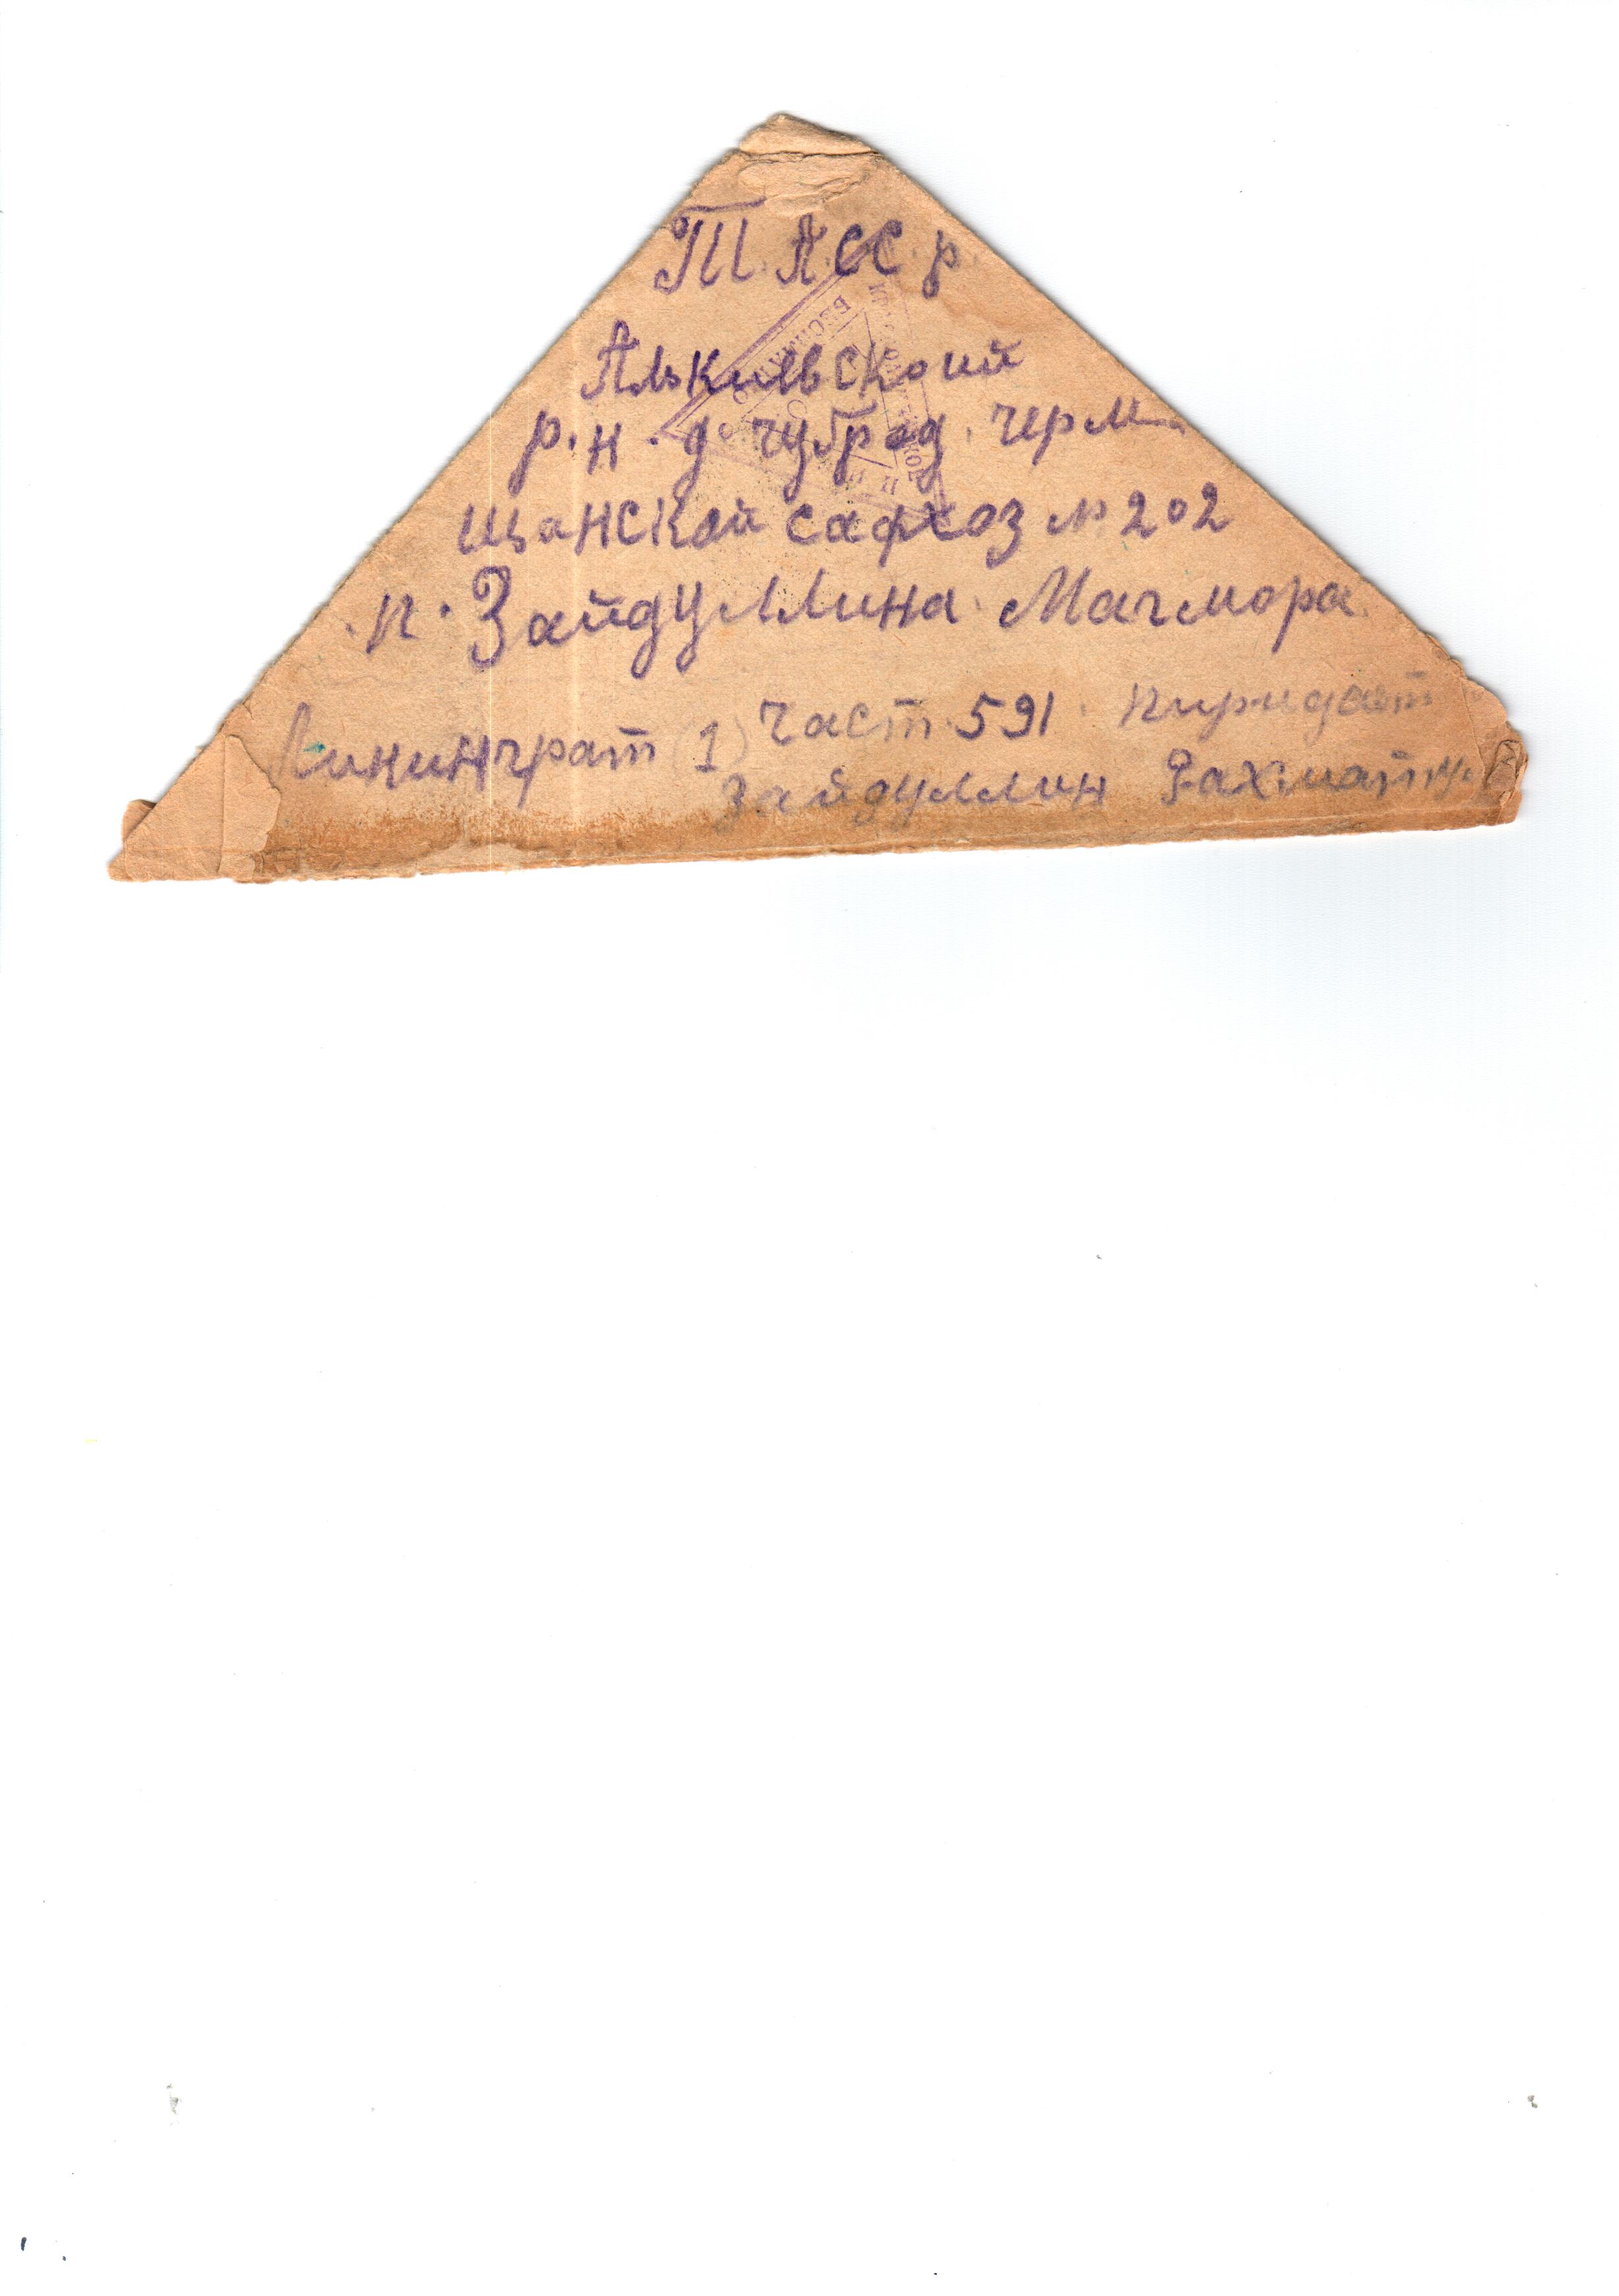 Т.А.СС.р.
Алькиевскоий
р.н. д чубрад. черм
шанской сафхоз № 202
п. Зайдуллина Магмора.
Лининграт (1) Част. 591. Пиридаст
Зайдуллин Рахмат
БЕСПЛАТНО